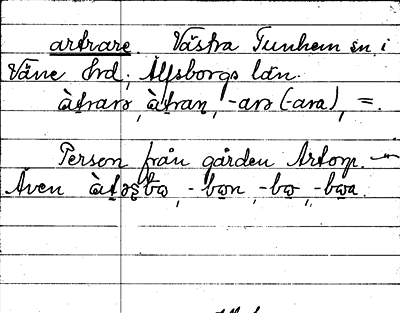 artrare. Västra Tunhem sn. i
Väne hrd, Älfsborgs län.
àt̨rarə, àt̨ran, -arə (-ara), =.
Person från gården Artorp. —
Även